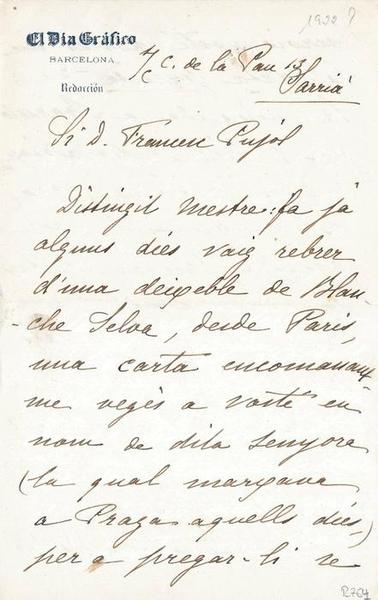 1922 ?
El Dia Gráfico
BARCELONA
Redacción
S/C. de la Pau 13
Sarriá
Sr D. Francesc Pujol
Distingit mestre: fa já
alguns dies vaig rebrer
d'una deixeble de Blan-
-che Selva, desde Paris,
una carta encomanant
me vegès a vosté en
nom de dita senyora
(la qual marxava
a Praga aquells dies,
per a pregar-li se
R.764